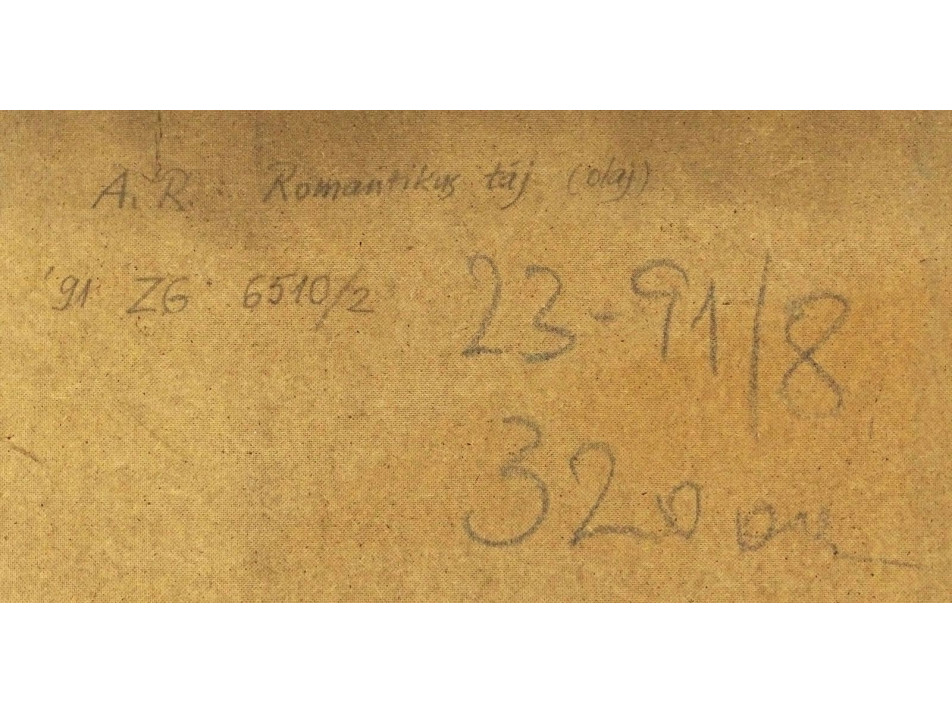 A. R. : Romantikus táj (olaj)
'91 ZG 6510/2
23-91/8
320